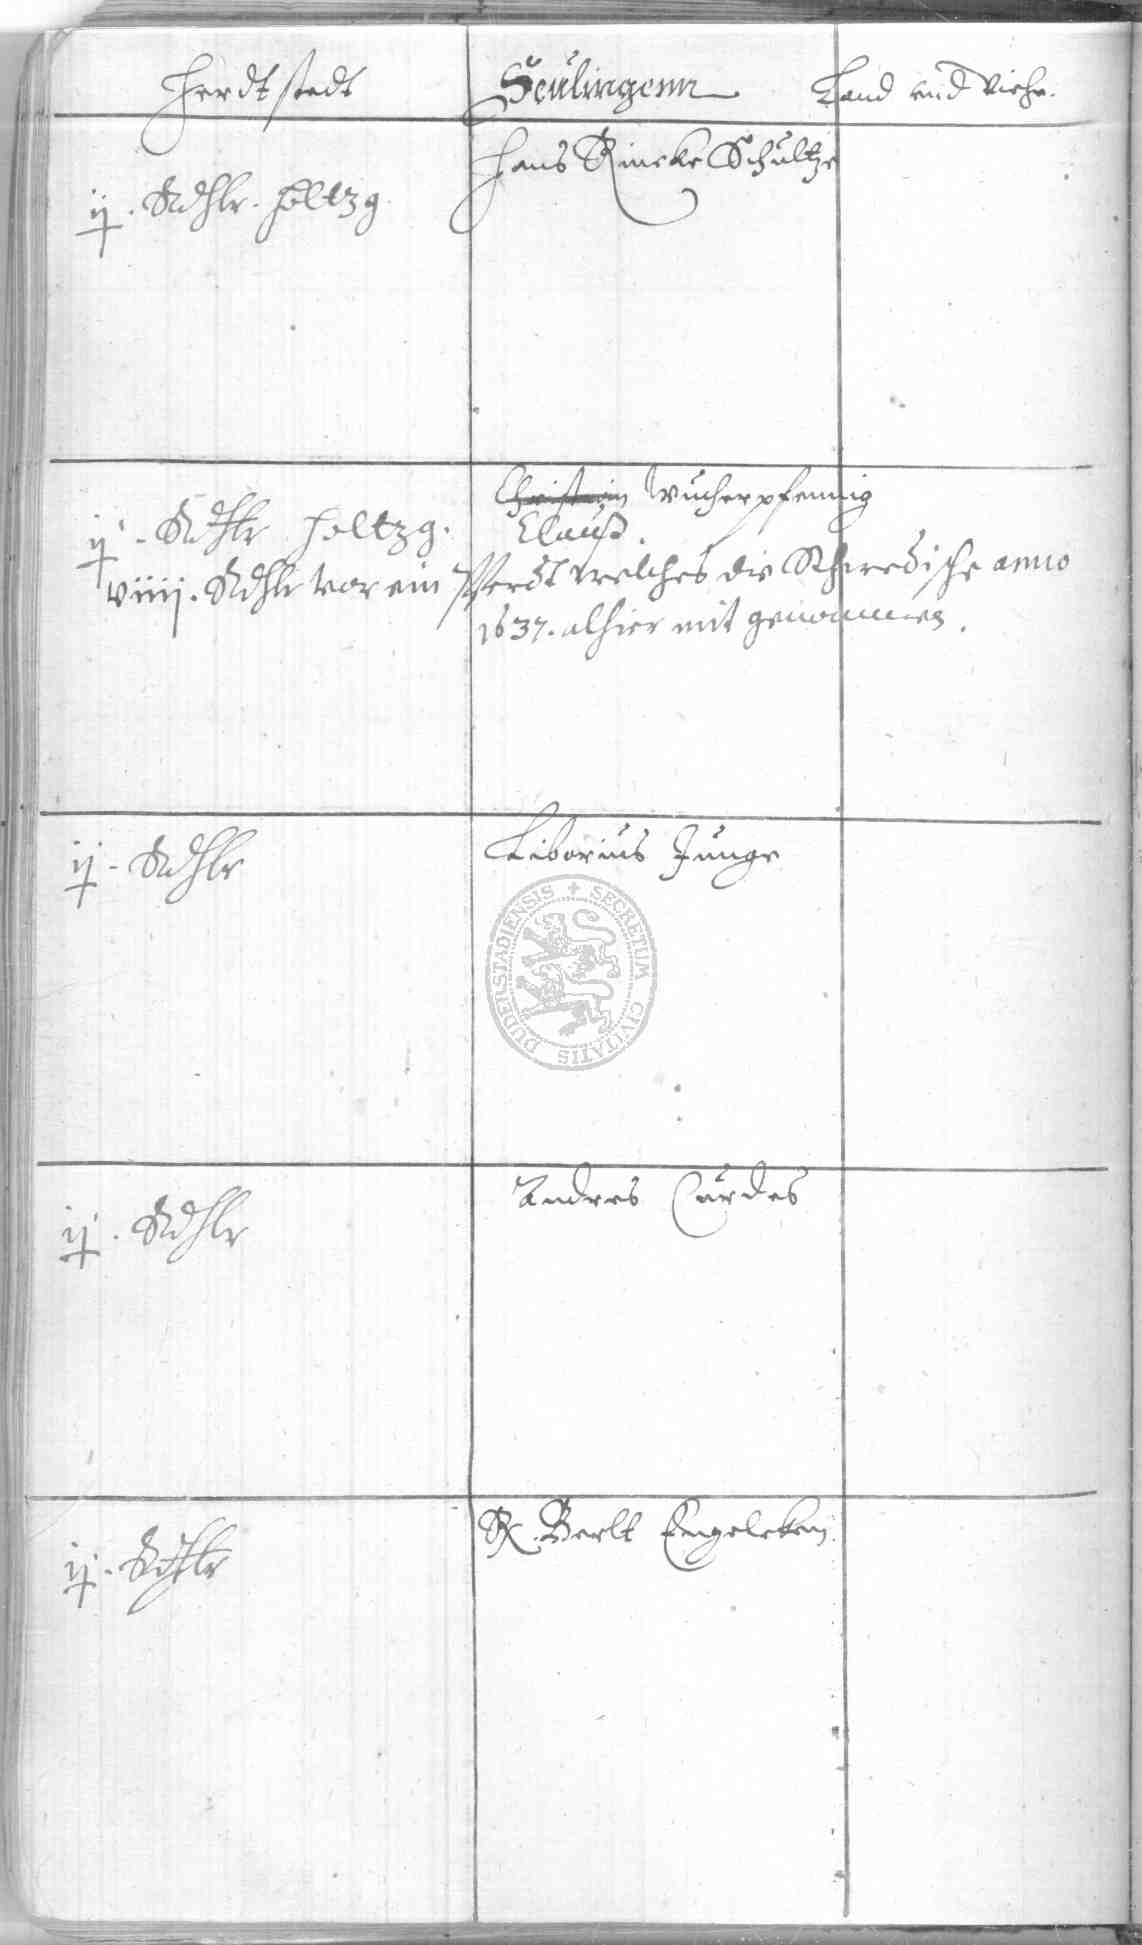 Herdtstedt Seulingenn Land und Viehe.
Hans Rincke Schultze
ij. Rthlr. holtzg.
Christian Wucherpfennig
Clauß.
ij. Rthlr holtzg.
viiij. Rthlr vor ein Pferdt welches die Schwedische anno
1637. alhier mit genommen.
ij. Rthlr Liborius Junge
DUDERSTADIENSIS + SECRETUM CIVITATIS
ij. Rthlr Andres Curdes
ij. Rthlr Berlt Engelcken